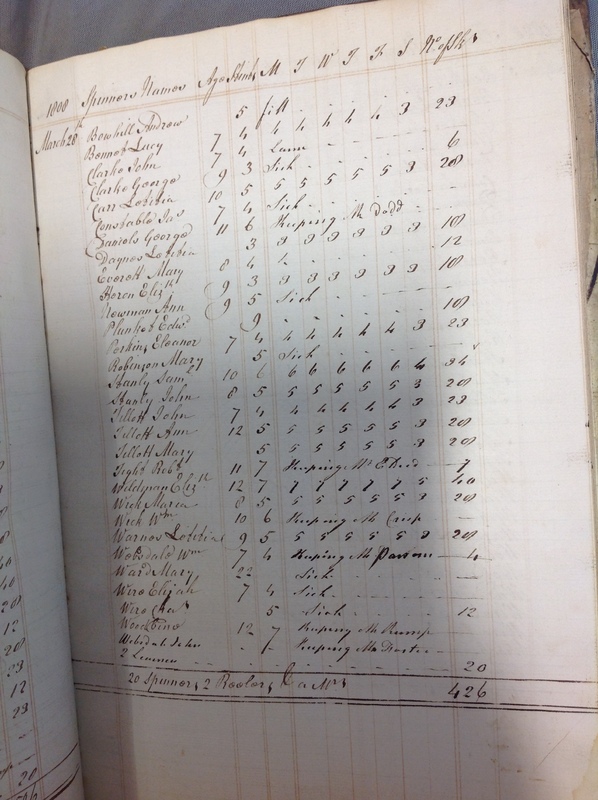 1800 Spinners Names Age Stint M T W T F S No of Sks
March 28th Bowhill Andrew 5 fill
Bennet Lucy 7 4 4 4 4 4 4 3 23
Clarke John 7 4 Lame 6
Clarke George 9 3 Sick
Carr Letitia 10 5 5 5 5 5 5 3 28
Constable Jas 7 4 Sick
Daniels George 11 6 Keeping Mr Dodd
Daynes Letitia 3 3 3 3 3 3 3 18
Everett Mary 8 4 4 12
Heron Elizth 9 3 3 3 3 3 3 3 18
Newman Ann 9 5 Sick
Plunket Edwd 9 18
Perkins Eleanor 7 4 4 4 4 4 4 3 23
Robinson Mary 5 Sick
Stanly Saml 10 6 6 6 6 6 6 4 34
Stanly John 8 5 5 5 5 5 5 3 28
Tillott John 7 4 4 4 4 4 4 3 23
Tillott Ann 12 5 5 5 5 5 5 3 28
Tillott Mary 5 5 5 5 5 5 3 28
Tight Robt 11 7 Keeping Mr E Dodd 7
Weldman Elizth 12 7 7 7 7 7 7 5 40
Wick Maria 8 5 5 5 5 5 5 3 28
Wick Wm 10 6 Keeping Mr Crisp
Warnes Letitia 9 5 5 5 5 5 5 3 28
Wobsdald Wm 7 4 Keeping Mr Parsons 4
Ward Mary 22 Sick
Wire Elijah 7 4 Sick
Wire Chas 5 Sick 12
Woodbine 12 7 Keeping Mr Rump
Websdale John Keeping Mr Foster
2 Learners 20
20 Spinners 2 Reelers & a Mrs 426